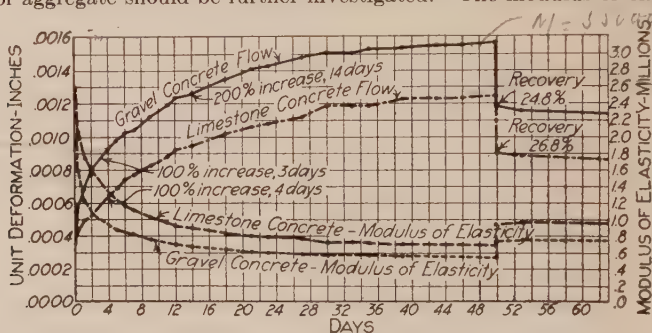 or aggregate should be further investigated.
UNIT DEFORMATION-INCHES
.0016
.0014
.0012
.0010
.0008
.0006
.0004
.0002
.0000
Gravel Concrete Flow
200% increase, 14 days
Limestone Concrete Flow
100% increase, 3 days
100% increase, 4 days
Limestone Concrete - Modulus of Elasticity
Gravel Concrete - Modulus of Elasticity
Recovery
24.8%
Recovery
26.8%
3.0
2.8
2.6
2.4
2.2
2.0
1.8
1.6
1.4
1.2
1.0
.8
.6
.4
.2
0
MODULUS OF ELASTICITY-MILLIONS
0 4 8 12 16 20 24 28 32 36 40 44 48 52 56 60
DAYS